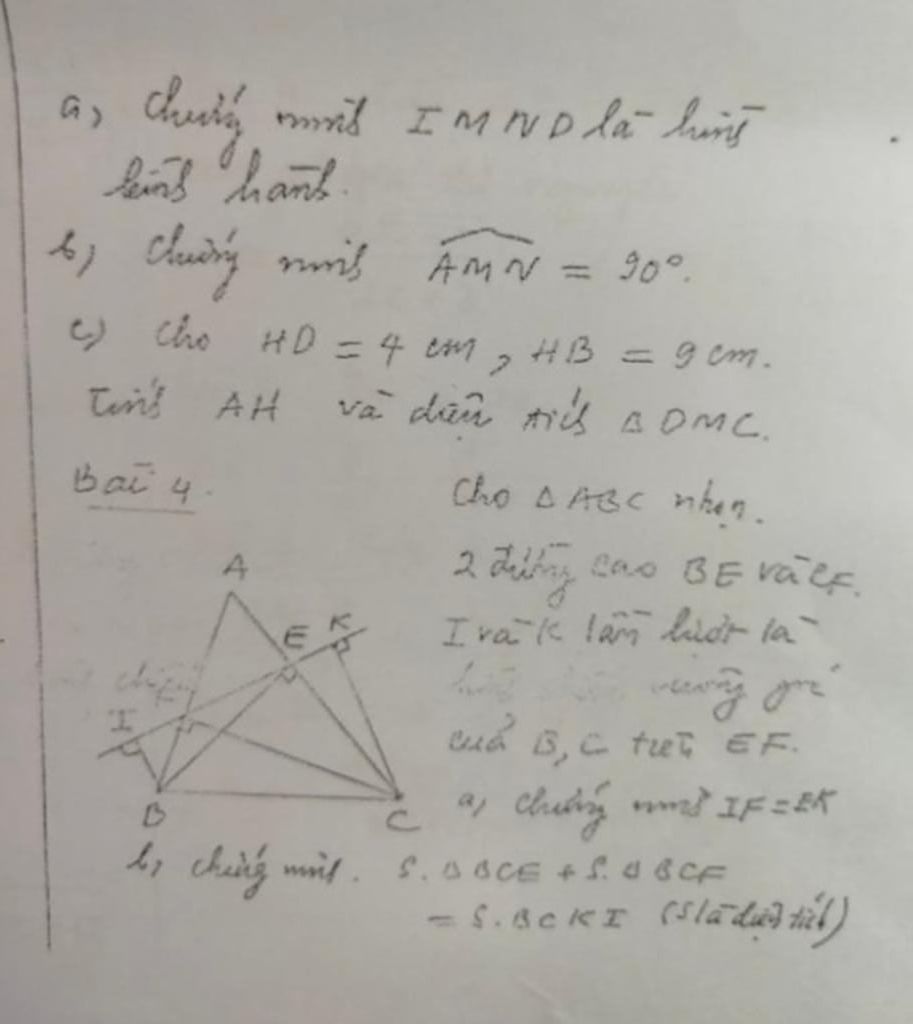 a, Chứng minh IMND là hình
bình hành.
b, Chứng minh AMN = 90°.
c) Cho HD = 4 cm, HB = 9 cm.
Tính AH và diện tích Δ DMC.
Bài 4.
Cho Δ ABC nhọn.
2 đường cao BE và CF.
I và K lần lượt là
vuông góc
của B, C trên EF.
a, Chứng minh IF = EK
b, Chứng minh. S.Δ BCE + S.Δ BCF
= S.BCKI (S là diện tích)
A
E K
I
B C